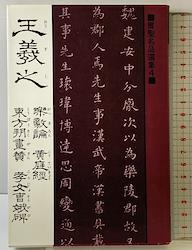 ■書聖名品選集4■
魏建安中分厭次以為樂陵郡故又
為郡人焉先生事漢武帝漢書具載
其事先生瓌瑋博達思周變通以
王羲之
楽毅論 黄庭経
東方朔画賛 孝女曹娥碑